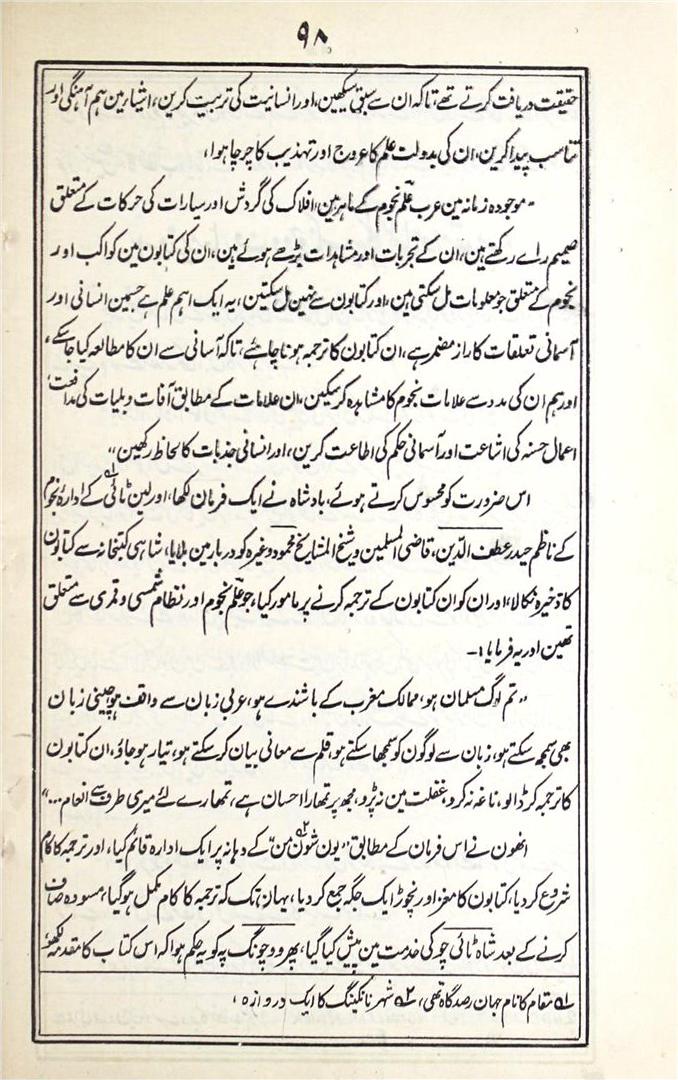 ۹۸
حقیقت دریافت کرتے تھے، تاکہ ان سے سبق سیکھین، اور انسانیت کی تربیت کرین، اشیار مین ہم آہنگی اور
تناسب پیدا کرین، ان کی بدولت علم کا عروج اور تہذیب کا چرچا ہوا،
"موجودہ زمانہ مین عرب علم نجوم کے ماہر ہین، افلاک کی گردش اور سیارات کی حرکات کے متعلق
صحیح راے رکھتے ہین، ان کے تجربات اور مشاہدات بڑھے ہوئے ہین، ان کی کتابون مین کواکب اور
نجوم کے متعلق جو معلومات مل سکتی ہین، اور کتابون سے نہین مل سکتین، یہ ایک اہم علم ہے جسمین انسانی اور
آسمانی تعلقات کا راز مضمر ہے، ان کتابون کا ترجمہ ہونا چاہئے، تاکہ آسانی سے ان کا مطالعہ کیا جا سکے،
اور ہم ان کی مدد سے علامات نجوم کا مشاہدہ کر سکین، ان علامات کے مطابق آفات و بلیات کی مدافعت،
اعمال حسنہ کی اشاعت اور آسمانی حکم کی اطاعت کرین، اور انسانی جذبات کا لحاظ رکھین"
اس ضرورت کو محسوس کرتے ہوئے، بادشاہ نے ایک فرمان لکھا، اور لین ٹائی لہ کے ادارۂ نجوم
کے ناظم حیدر عطف الدّین، قاضی المسلمین و شیخ المشایخ محمود وغیرہ کو دربار مین بلایا، شاہی کتبخانہ سے کتابون
کا ذخیرہ نکالا، اور ان کو ان کتابون کے ترجمہ کرنے پر مامور کیا، جو علم نجوم اور نظام شمسی و قمری سے متعلق
تھین اور یہ فرمایا:-
"تم لوگ مسلمان ہو، ممالک مغرب کے باشندے ہو، عربی زبان سے واقف ہو، چینی زبان
بھی سمجھ سکتے ہو، زبان سے لوگون کو سمجھا سکتے ہو، قلم سے معانی بیان کر سکتے ہو، تیار ہو جاؤ، ان کتابون
کا ترجمہ کر ڈالو، ناغہ نہ کرو، غفلت مین نہ پڑو، مجھ پر تمھارا احسان ہے، تمھارے لئے میری طرف سے انعام..."
انھون نے اس فرمان کے مطابق "یون شون من" ۲ہ کے دہانہ پر ایک ادارہ قائم کیا، اور ترجمہ کا کام
شروع کر دیا، کتابون کا مغز اور نچوڑ ایک جگہ جمع کر دیا، یہان تک کہ ترجمہ کا کام مکمل ہو گیا، مسودہ صاف
کرنے کے بعد شاہ تائی چو کی خدمت مین پیش کیا گیا، پھر ووچونگ پہ کو یہ حکم ہوا کہ اس کتاب کا مقدمہ لکھو،
لہ مقام کا نام جہان رصدگاہ تھی، ۲ہ شہر نانکینگ کا ایک دروازہ،